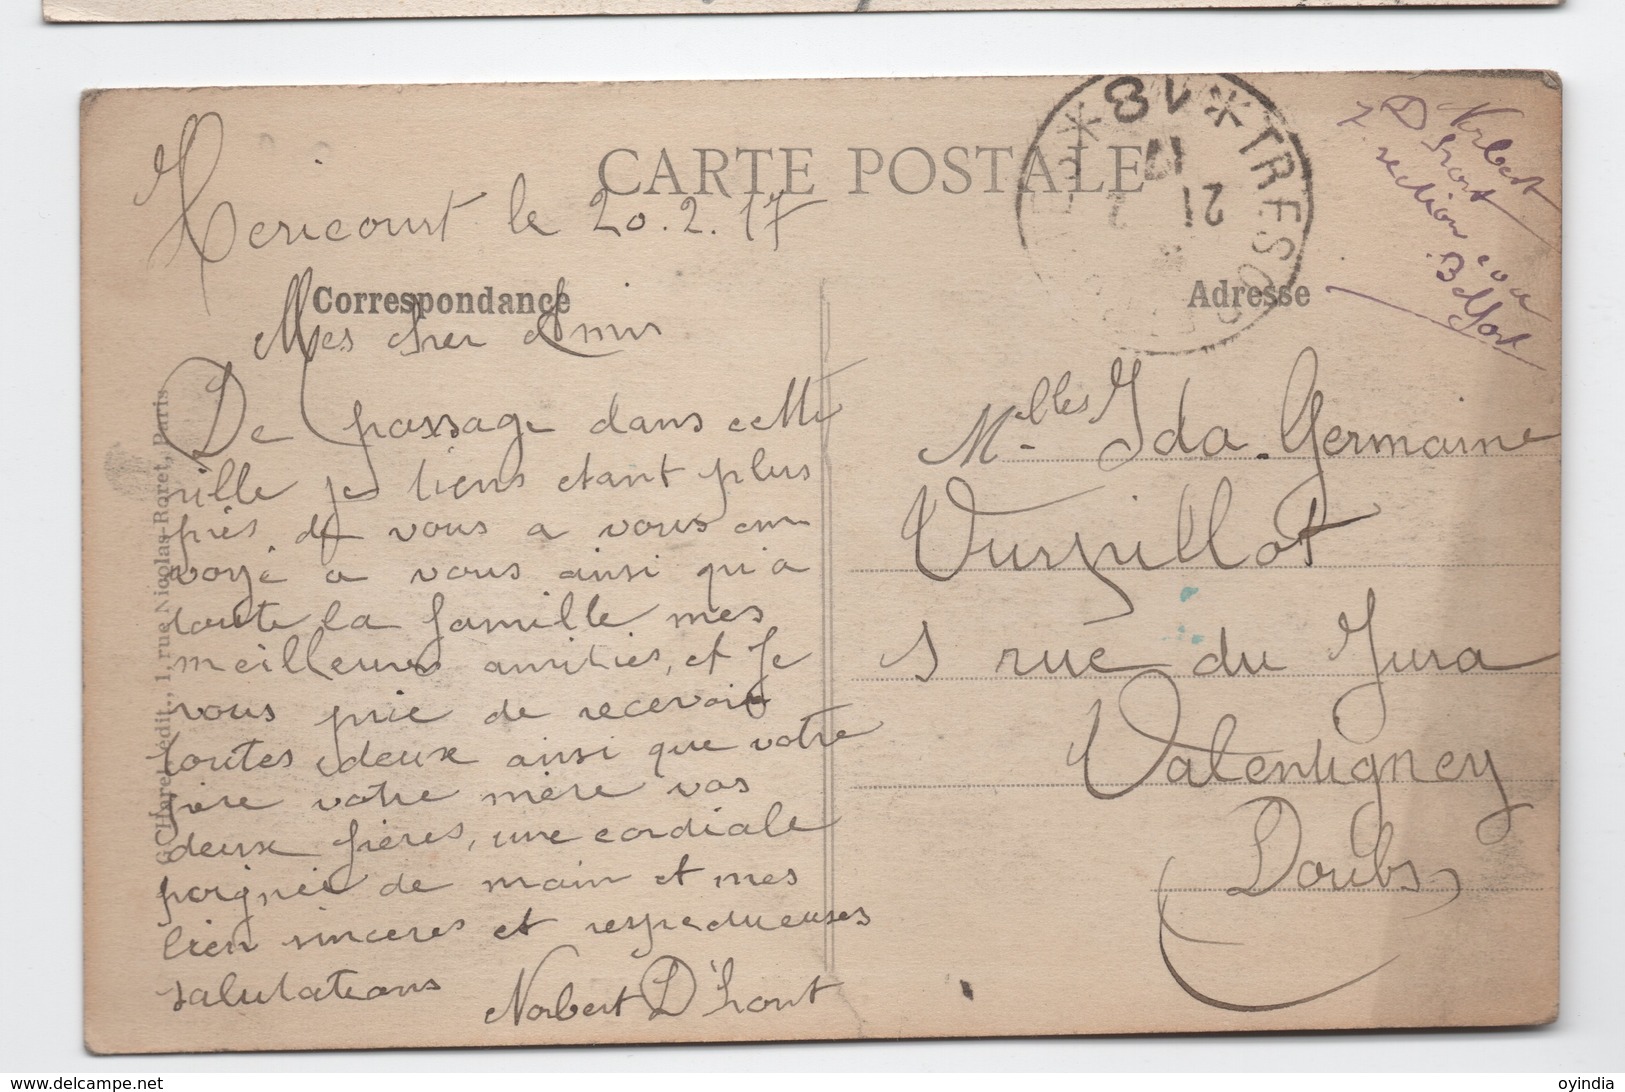 CARTE POSTALE
Hericourt le 20.2.17
Correspondance
Mes cher Amis
De passage dans cette
ville je tiens etant plus
près de vous a vous en
voyé a vous ainsi qu'a
toute la famille mes
meilleures amitiés, et je
vous prie de recevoir
toutes deux ainsi que votre
père votre mère vos
deux frères, une cordiale
poignée de main et mes
bien sinceres et respectueuses
salutations
Norbert D'hont
G. CHaret, édit., 1, rue Nicolas-Roret, Paris
*TRESOR
* 18 *
21
2
17
Norbert
D'hont
section
Belfort
Adresse
Melles Ida-Germaine
Vurpillot
rue du Jura
Valentigney
Doubs
oyindia